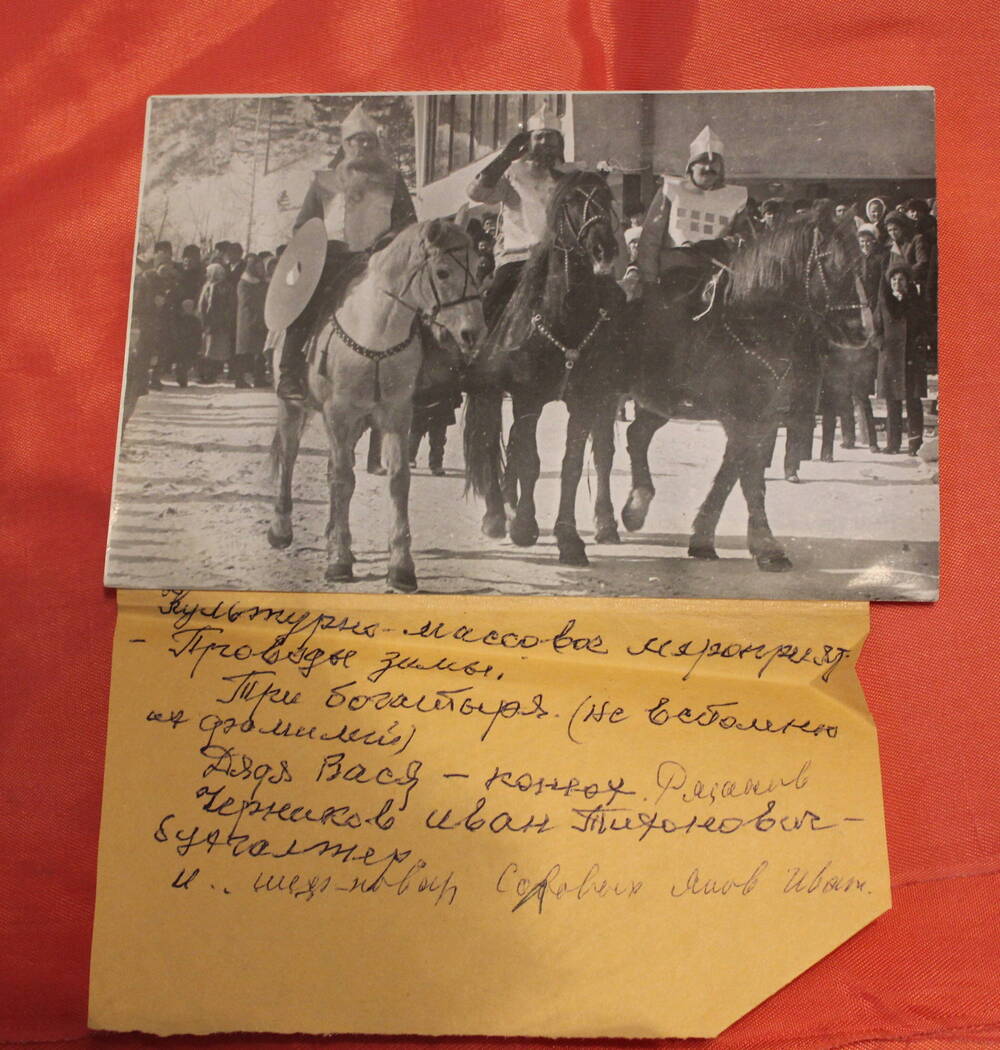 Культурно-массовое меропрят.
- Проводы зимы.
Три богатыря. (Не вспомню
их фамилий)
Дядя Вася - конюх. Рязанов
Черников Иван Тихонович -
бухгалтер
и.. шеф-повар Иван.